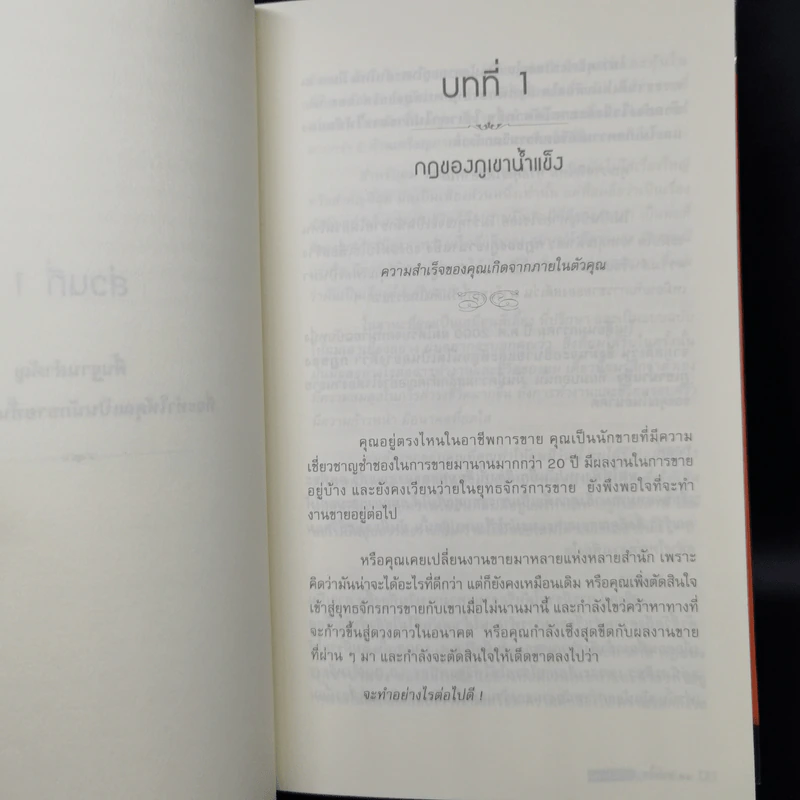 บทที่ 1
กฎของภูเขาน้ำแข็ง
ความสำเร็จของคุณเกิดจากภายในตัวคุณ
คุณอยู่ตรงไหนในอาชีพการขาย คุณเป็นนักขายที่มีความ
เชี่ยวชาญช่ำชองในการขายมานานมากกว่า 20 ปี มีผลงานในการขาย
อยู่บ้าง และยังคงเวียนว่ายในยุทธจักรการขาย ยังพึงพอใจที่จะทำ
งานขายอยู่ต่อไป
หรือคุณเคยเปลี่ยนงานขายมาหลายแห่งหลายสำนัก เพราะ
คิดว่ามันน่าจะได้อะไรที่ดีกว่า แต่ก็ยังคงเหมือนเดิม หรือคุณเพิ่งตัดสินใจ
เข้าสู่ยุทธจักรการขายกับเขาเมื่อไม่นานมานี้ และกำลังไขว่คว้าหาทางที่
จะก้าวขึ้นสู่ดวงดาวในอนาคต หรือคุณกำลังเซ็งสุดขีดกับผลงานขาย
ที่ผ่าน ๆ มา และกำลังจะตัดสินใจให้เด็ดขาดลงไปว่า
จะทำอย่างไรต่อไปดี !
ส่วนที่ 1